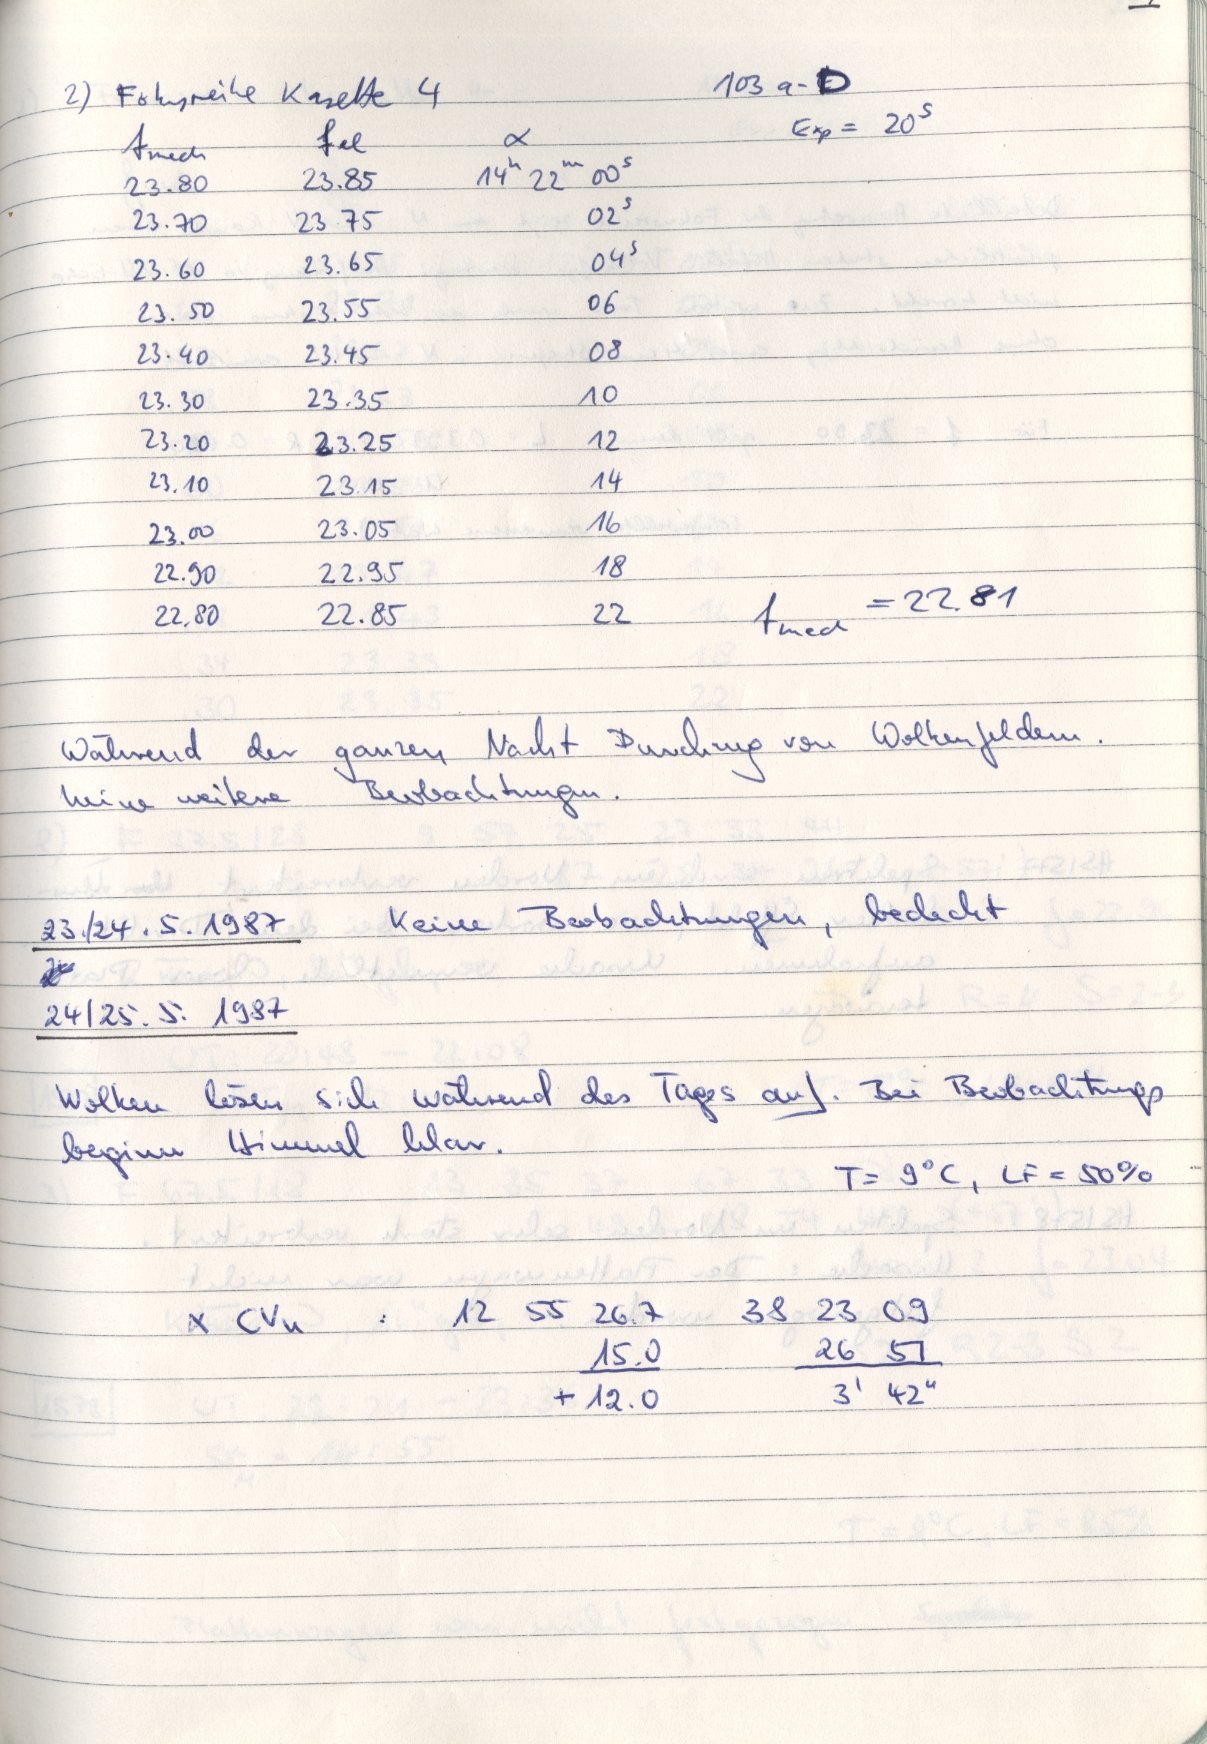 2) Fokusreihe Kasette 4 103 a-D
Exp = 20ˢ
fmech fel α
23.80 23.85 14ʰ 22ᵐ 00ˢ
23.70 23.75 02ˢ
23.60 23.65 04ˢ
23.50 23.55 06
23.40 23.45 08
23.30 23.35 10
23.20 23.25 12
23.10 23.15 14
23.00 23.05 16
22.90 22.95 18
22.80 22.85 22 fmech = 22.81
Während der ganzen Nacht Durchzug von Wolkenfeldern.
Keine weitere Beobachtungen.
23./24.5.1987 Keine Beobachtungen, bedeckt
24/25.5.1987
Wolken lösen sich während des Tages auf. Bei Beobachtungs
beginn Himmel klar.
T= 9°C, LF = 50%
α CVn : 12 55 26.7 38 23 09
15.0 26 51
+ 12.0 3' 42"